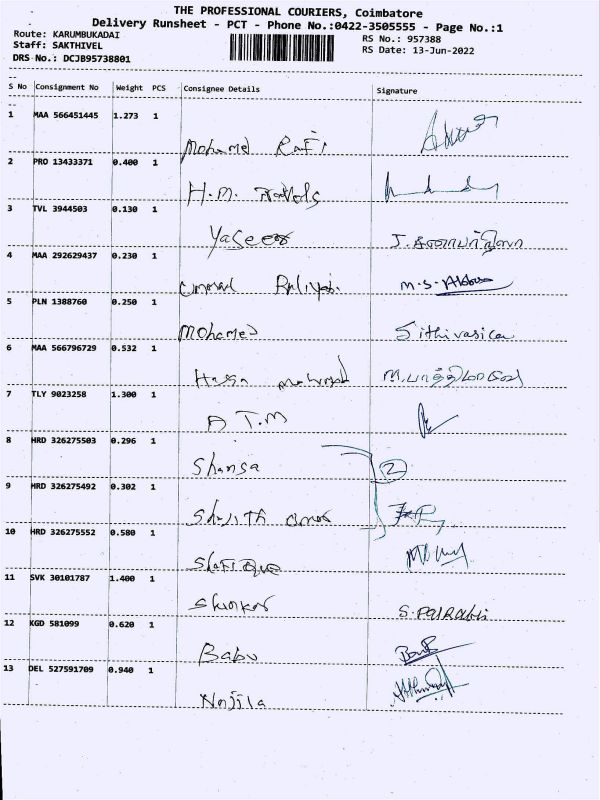 THE PROFESSIONAL COURIERS, Coimbatore
Delivery Runsheet - PCT - Phone No.:0422-3505555 - Page No.:1
Route: KARUMBUKADAI
RS No.: 957388
Staff: SAKTHIVEL
RS Date: 13-Jun-2022
DRS No.: DCJB95738801
S No Consignment No Weight PCS Consignee Details Signature
1 MAA 566451445 1.273 1
Mohamed Rafi
2 PRO 13433371 0.400 1
H.M.
3 TVL 3944503 0.130 1
Yaseer J.
4 MAA 292629437 0.230 1
M.S. Abbas
5 PLN 1388760 0.250 1
Mohamed Sithivasica
6 MAA 566796729 0.532 1
M.
7 TLY 9023258 1.300 1
A T.M
8 HRD 326275503 0.296 1
Shamsa 2
9 HRD 326275492 0.302 1
10 HRD 326275552 0.580 1
Shafique
11 SVK 30101787 1.400 1
Shinkar S.
12 KGD 581099 0.620 1
Babu
13 DEL 527591709 0.940 1
Najila